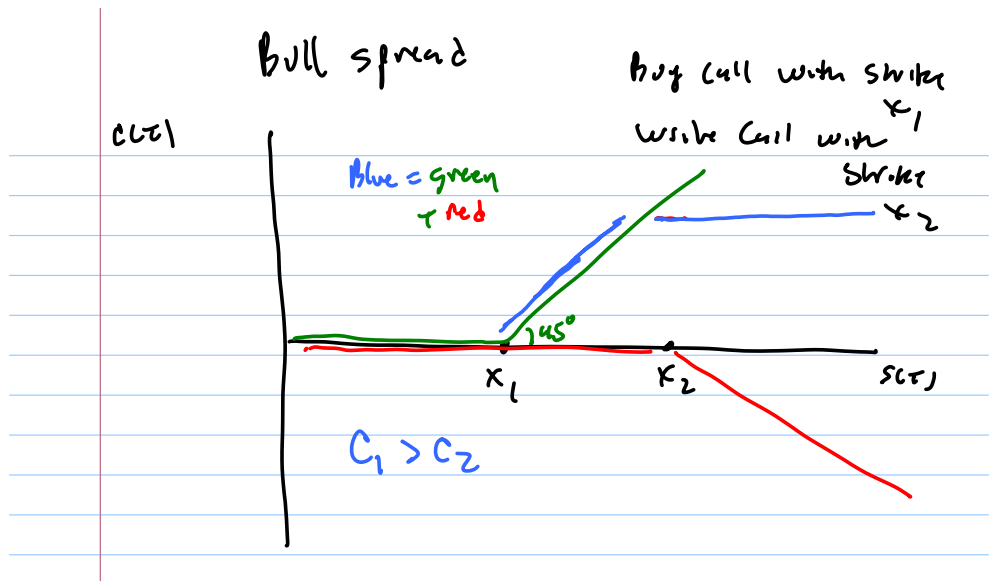 Bull spread
Buy call with strike
x1
C(T)
write call with
strike
x2
Blue = green
+ red
45°
x1
x2
S(T)
C1 > C2